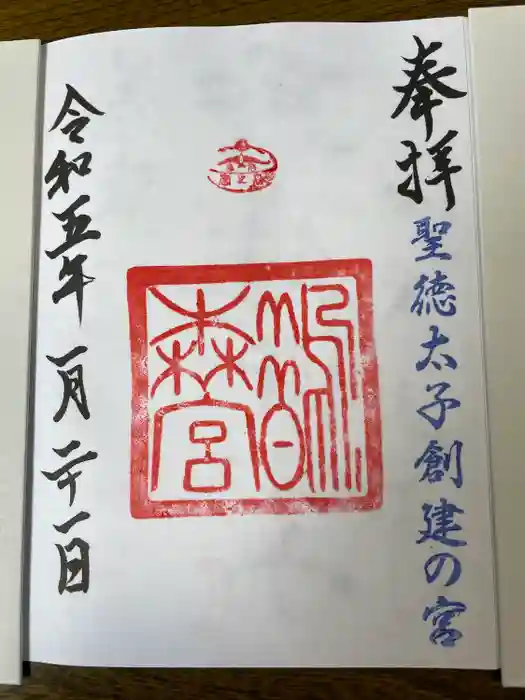 奉拝
聖徳太子創建の宮
鵲
森宮
令和五年 一月二十一日